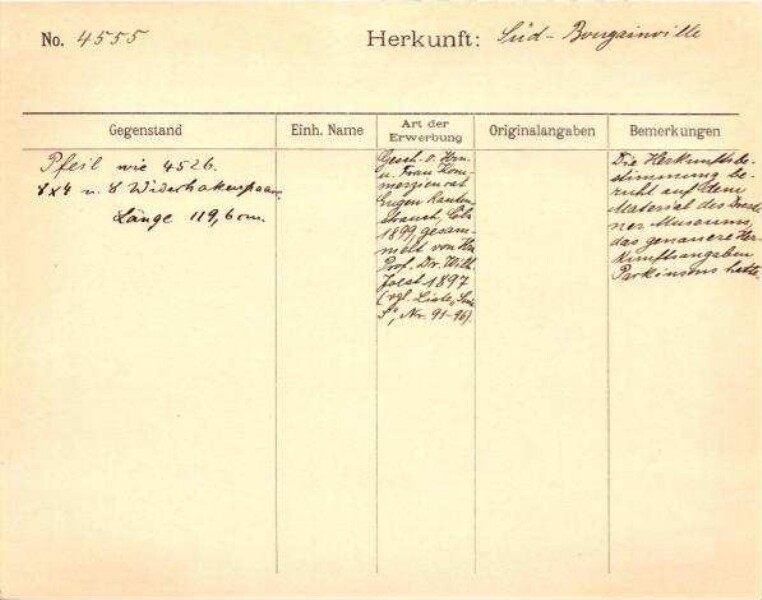 No. 4555 Herkunft: Süd-Bougainville
Gegenstand
Einh. Name
Art der
Erwerbung
Originalangaben
Bemerkungen
Pfeil wie 4526.
8x4 u. 8 Widerhakenpaare,
Länge 119,6 cm.
Gesch. v. Hrn.
u. Frau Kom-
merzienrat
Eugen Rauten-
strauch, Cöln
1899, gesam-
melt von Hn.
Prof. Dr. Wilh.
Joest 1897
(vgl. Liste
Nr. 91-96).
Die Herkunftsbe-
stimmung be-
ruht auf dem
Material des Dresde-
ner Museums,
das genauere Her-
kunftsangaben
Parkinsons hatte.